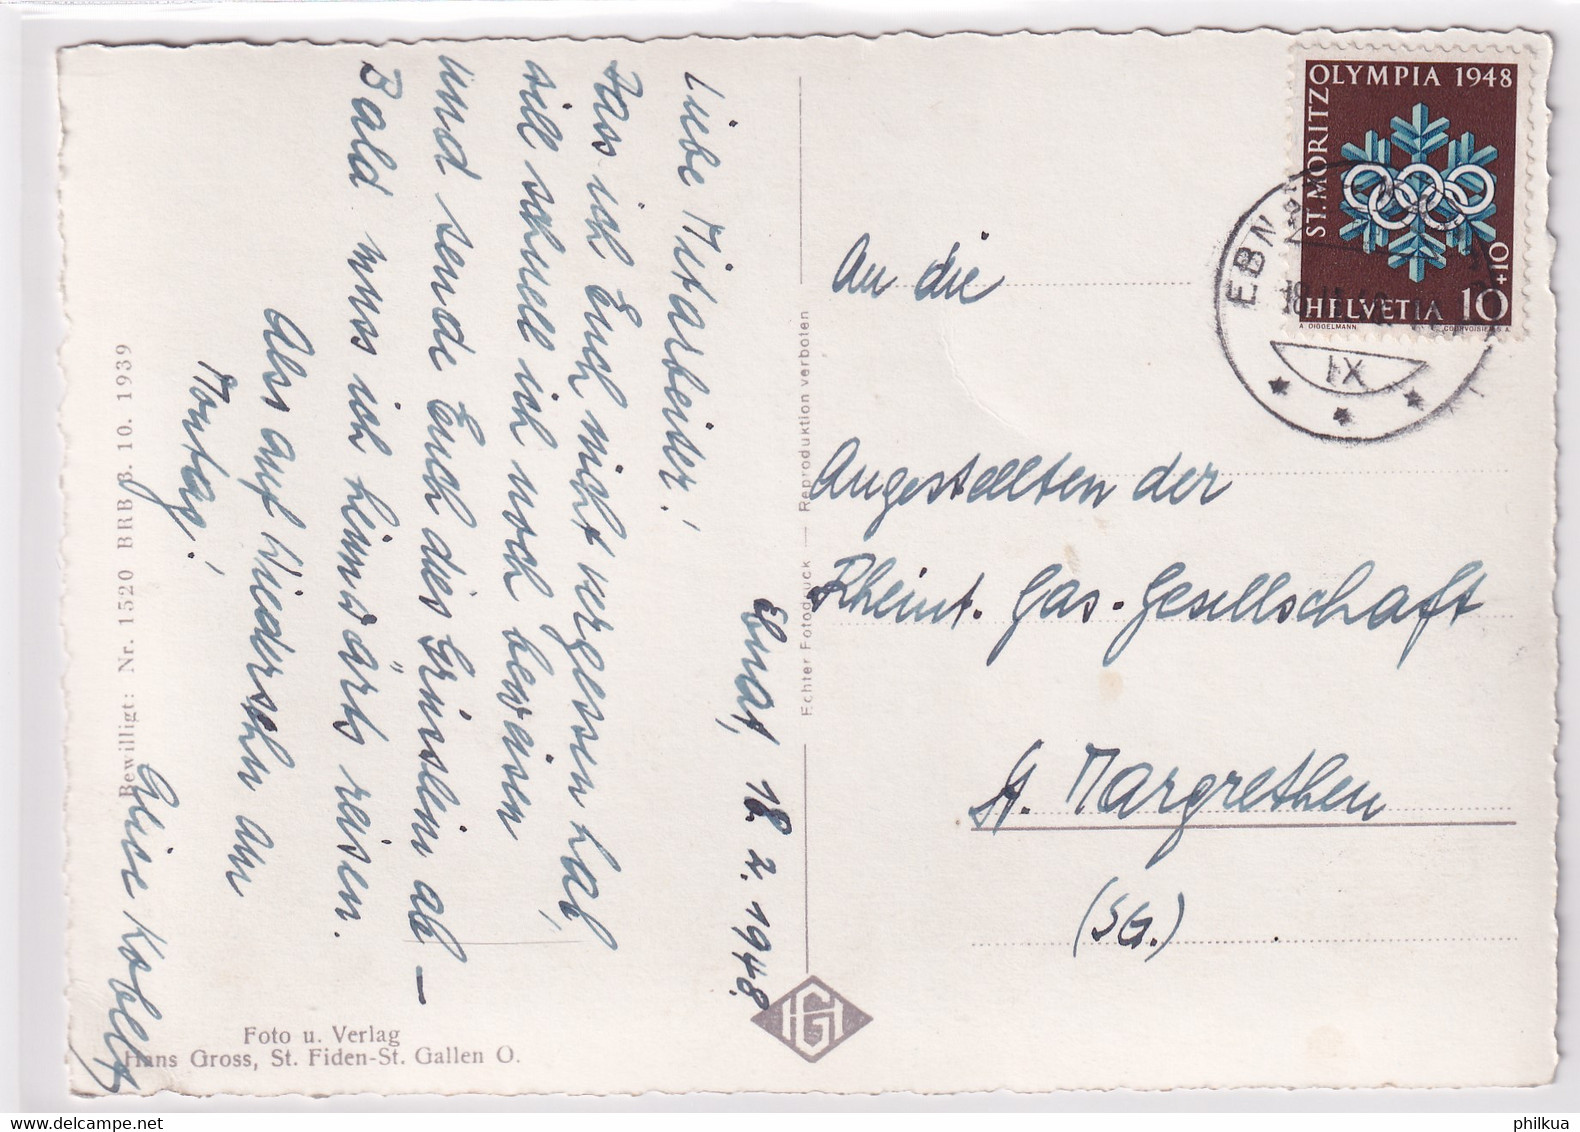 Ebnat, 18. 2. 1948.
Liebe Mitarbeiter!
Dass ich Euch nicht vergessen hab,
will schnell ich noch beweisen
und sende Euch dies Grüsslein ab –
Bald muss ich heimwärts reisen.
Also auf Wiedersehn am
Montag!
Alice Kobelt
An die
Angestellten der
Rheint. Gas-Gesellschaft
St. Margrethen
(SG.)
ST. MORITZ OLYMPIA 1948
HELVETIA 10+10
A. DIGGELMANN.
COURVOISIER S.A.
EBNAT
18.II.48
IX
Echter Fotodruck — Reproduktion verboten
Bewilligt: Nr. 1520 BRB 3. 10. 1939
Foto u. Verlag
Hans Gross, St. Fiden-St. Gallen O.
HG
philkua